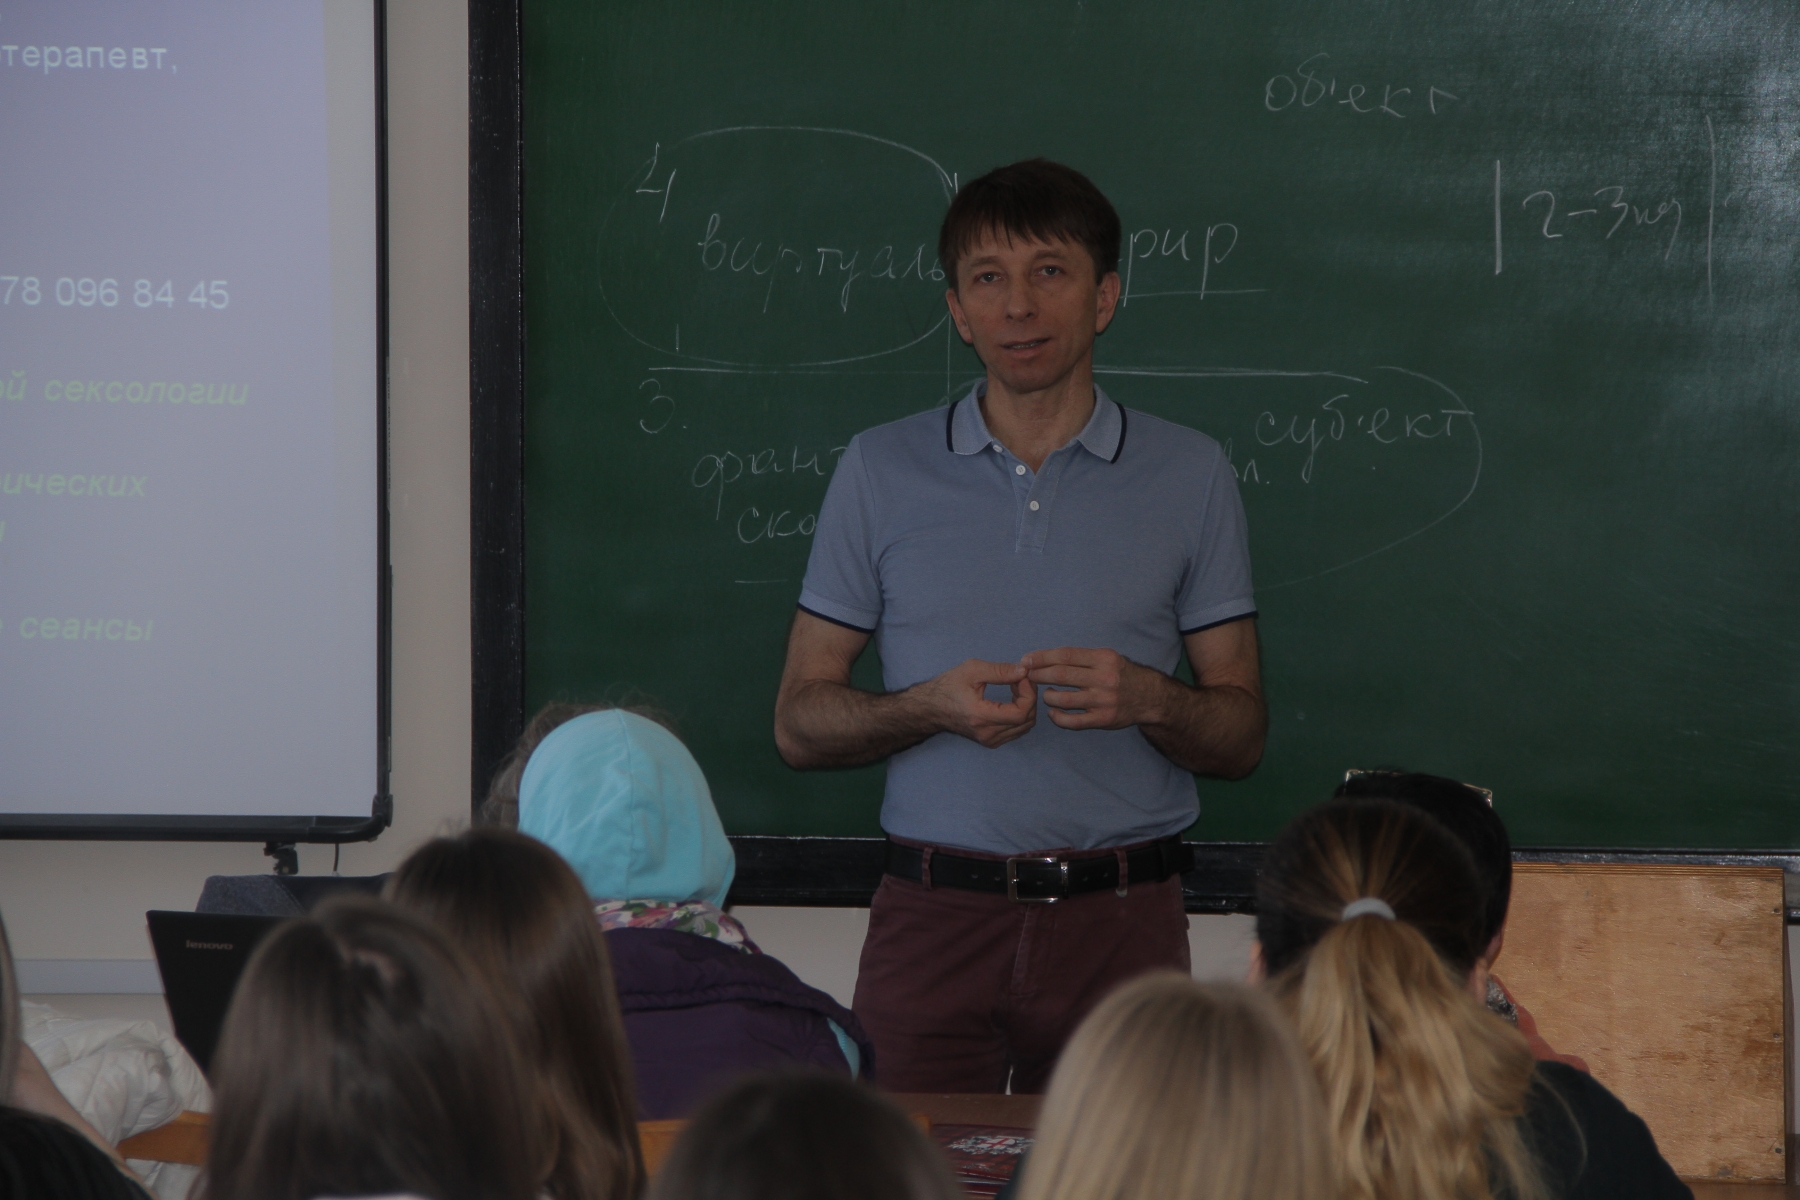 отерапевт,
78 096 84 45
ой сексологии
ических
и
е сеансы
объект
4
виртуаль рир
2-3 нд
3.
фант вл. субъект
ско
lenovo